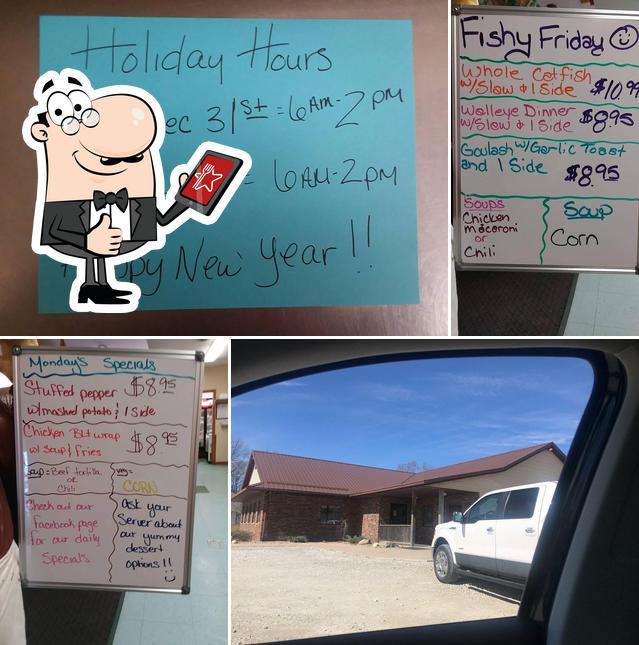 Holiday Hours
31st = 6AM-2PM
= 6AM-2PM
New Year!!
Fishy Friday
Whole Catfish
w/Slaw & 1 Side $10.99
Walleye Dinner
w/Slaw & 1 Side $8.95
Goulash w/Garlic Toast
and 1 Side $8.95
Soups
Chicken
macaroni
or
Chili
Soup
Corn
Monday's Specials
Stuffed pepper $8.95
w/mashed potato & 1 side
Chicken BLT wrap
w/ Soup & Fries $8.95
Soup = Beef tortilla
or
Chili
veg=
CORN
Check out our
facebook page
for our daily
Specials
Ask your
Server about
our yummy
dessert
options!!